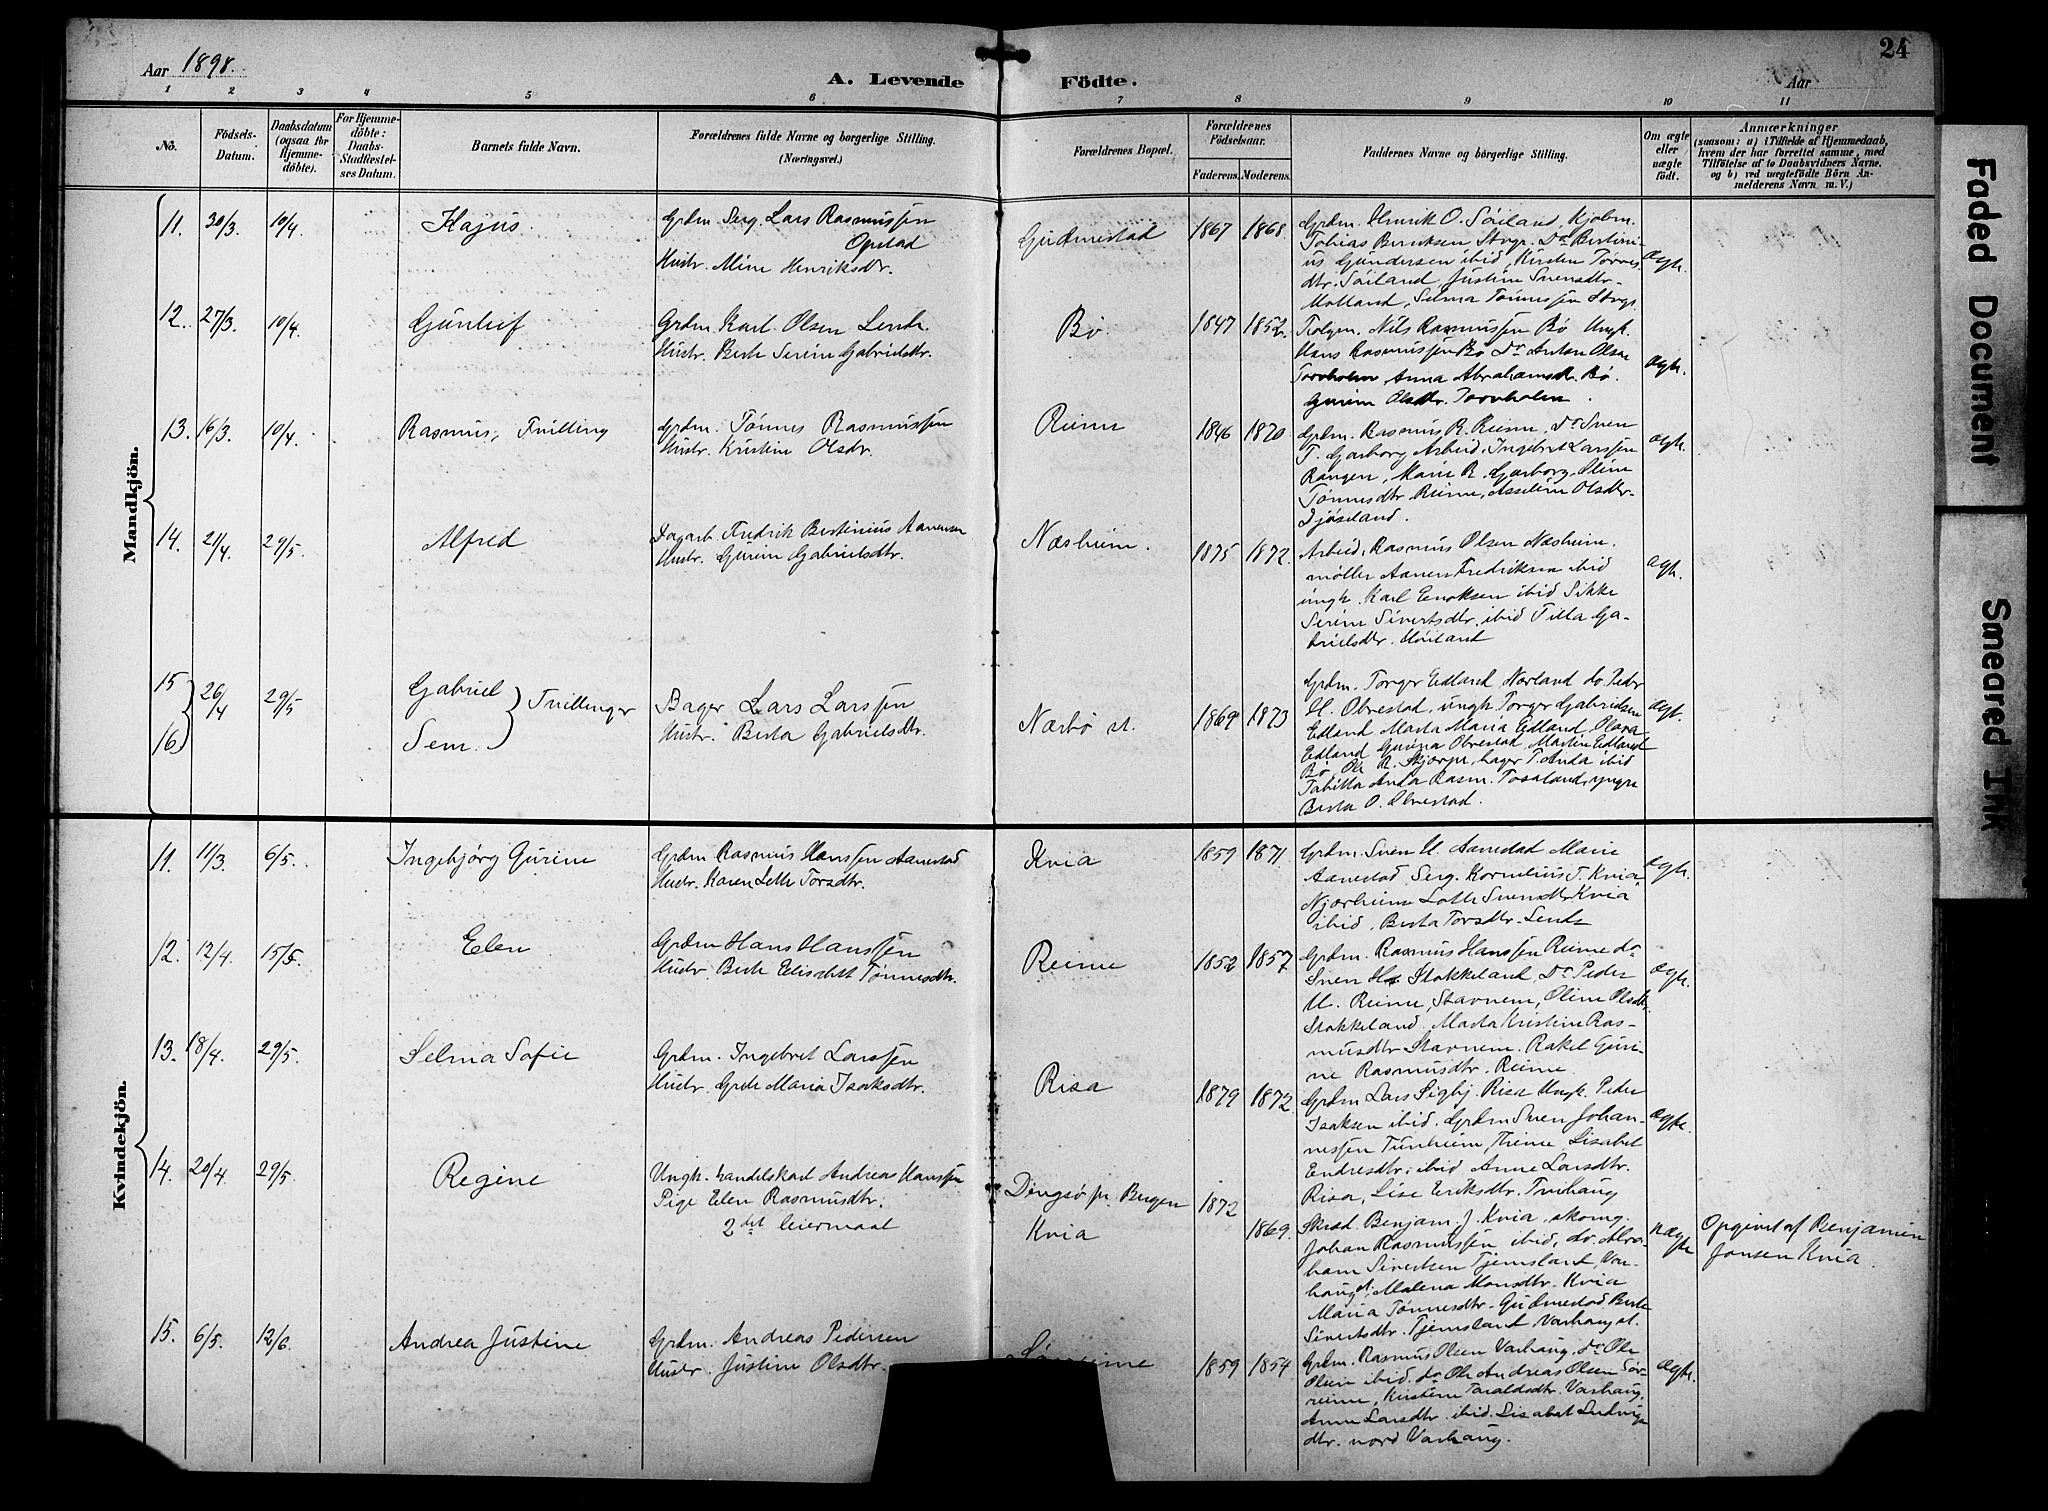 Aar 1898.
A. Levende Födte.
Aar
24
1 2 3 4 5 6 7 8 9 10 11
No.
Födsets-Datum.
Daabsdatum (ogsaa for Hjemme-döbte).
For Hjemme-döbte: Daabs-Stadfæstel-ses Datum.
Barnets fulde Navn.
Forældrenes fulde Navne og borgerlige Stilling. (Næringsvei.)
Forældrenes Bopæl.
Forældrenes Födselsaar.
Faderens. Moderens.
Faddernes Navne og borgerlige Stilling.
Om ægte eller uægte födt.
Anmærkninger
(saasom: a) i Tilfælde af Hjemmedaab,
hvem der har forrettet samme, med
Tilföielse af to Daabsvidners Navne.
og b) ved uægtefödte Börn An-
melderens Navn m. V.)
Mandkjön.
11. 30/3 10/4 Kajus.
Grdm. Serg. Lars Rasmussen
Opstad
Hustr. Mine Henriksdtr.
Gudmestad 1867 1868.
Grdm. Henrik O. Söiland, Kjøbm.
Tobias Svgr. Do Bertini-
us Gundersen ibid, Kirsten Torres
dtr. Söiland, Justine Svensdtr.
Motland, Selma Tönnessen Stvgr.
ægt.
12. 27/3. 10/4. Gunluf
Grdm. Karl Olsen Lende
Hustr. Berte Serine Gabrielsdtr.
Bø 1847 1852.
Nils Rasmussen Bø Ungk.
Hans Rasmussen Bø Do Anton Olsen
Torvholen, Anna Abrahamsdr. Bø.
Gurine Olsdtr. Torvholen.
ægt.
13. 16/3. 10/4. Rasmus, Tvilling
Grdm. Tönnes Rasmussen
Hustr. Kristine Olsdr.
Reime 1846 1870
Grdm. Rasmus R. Reime, Do Sven
T. Garborg Arbeid. Ingebret Larssen
Rangen, Marie R. Garborg, Oline
Tönnesdtr Reime, Asseline Olsdtr-
Djösland.
ægt.
14. 21/4 29/5. Alfred
Dagarb. Fredrik Bertinius Aanensen
Hustr. Gurine Gabrielsdtr.
Næsheim. 1875 1872.
Arbeid, Rasmus Olsen Næsheim.
möller Aanen Fredriksen ibid
ungk. Karl Enoksen ibid Sikke
Serine Sivertsdtr. ibid Tilla Ga-
brielsdtr. Höiland
ægt.
15 16 26/4 29/5 Gabriel Sem. Tvillinger
Bager Lars Larssen
Hustr. Berta Gabrielsdtr.
Nærbö st. 1869 1873
Grdm. Torger Edland Nærland do Peder
H. Obrestad, ungk Torger Gabrielsen
Edland Marta Maria Edland, Olava
Edland Gurina Obrestad, Martin Edland
Bø, Ole R. Skjærpe, bager T. Anda ibid
Tabitta Anda Rasm. Tosaland, yngre
Berta O. Obrestad.
ægt.
Kvindekjön.
11. 11/3 6/5. Ingebjörg Gurine
Grdm Rasmus Hanssen Aanestad
Hustr. Karen Lotte Torsdtr.
Kvia 1859 1871
Grdm. Sven H. Aanestad Marie
Aanestad, Serg. Kornelius T. Kvia,
Njærheim Lotte Svensdtr. Kvia
ibid, Berta Torsdtr. Lende
ægt.
12. 12/4. 15/5. Elen
Grdm Hans Hanssen
Hustr Berte Elisabet Tönnesdtr.
Reime 1852 1857
Grdm. Rasmus Hanssen Reime do-
Sven H. Stokkeland, Do Peder
H. Reime, Stavnem, Oline Olsdtr.
Stokkeland. Marta Kristine Ras-
musdtr Stavnem. Rakel Guri-
ne Rasmusdtr. Reime.
ægt.
13. 18/4. 29/5. Selma Sofie
Grdm. Ingebret Larssen
Hustr. Grete Maria Isaksdtr.
Risa 1879 1872.
Grdm Lars Sigbj. Risa Ungk. Peder
Isaksen ibid. Grdm Sven Johan-
nessen Tunheim, Trine Lisabet
Endresdtr. ibid Anne Larsdtr.
Risa, Lise Eriksdtr. Tvihaug
ægte.
14. 20/4 29/5. Regine
Ungk. handelskarl Andreas Hanssen
Pige Elen Rasmusdtr.
2det leiermaal
Dingsö pr. Bergen
Kvia
1872 1869.
Skræd. Benjam. J. Kvia, skomg.
Johan Rasmussen ibid, do. Abra-
ham Sivertsen Tjemsland, Var-
haug st, Malena Monsdtr. Kvia
Maria Tönnesdtr. Gudmestad Berte
Sivertsdtr. Tjemsland Varhaug st.
uægte
Opgivet af Benjamin
Jonsen Kvia.
15. 6/5. 12/6. Andrea Justine
Grdm. Andreas Pedersen
Hustr. Justine Olsdtr.
1859 1854
Grdm. Rasmus Olsen Varhaug, do Ole
Olsen ibid. do Ole Andreas Olsen Sör-
reime, Kirstine Taraldsdtr. Varhaug,
Anne Larsdtr. ibid. Lisabet Ludvigs
dtr. nord Varhaug.
ægte.
Faded Document
Smeared Ink